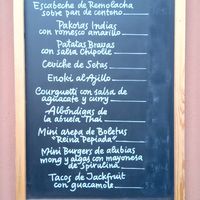 Escabeche de Remolacha
sobre pan de centeno
Pakoras Indias
con romesco amarillo
Patatas Bravas
con salsa Chipotle
Ceviche de Setas
Enoki al Ajillo
Courguetti con salsa de
aguacate y curry
Albóndigas de
la abuela Thai
Mini arepa de Boletus
"Reina Pepiada"
Mini Burgers de alubias
mong y algas con mayonesa
de spirulina
Tacos de Jackfruit
con guacamole